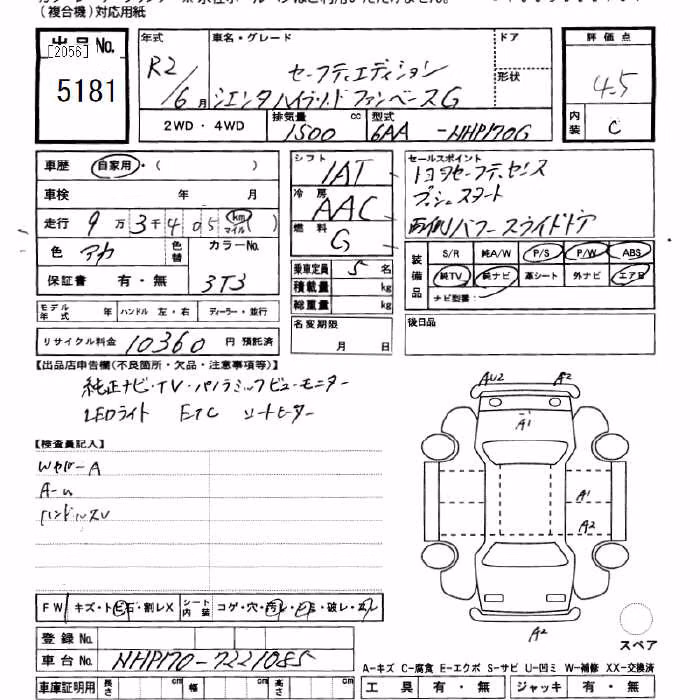 (複合機)対応用紙
出品No.
[2056]
5181
年式 車名・グレード ドア
R2/6月 セーフティエディション
シエンタハイブリッド ファンベースG
形状
評価点
4.5
内装 C
2WD・4WD 排気量 1500 cc 型式 6AA -NHP170G
車歴 自家用・( )
車検 年 月
走行 9万3千405 km マイル( )
色 アカ 色替 カラーNo. 3T3
保証書 有・無
モデル年式 年 ハンドル 左・右 ディーラー・並行
リサイクル料金 10360 円 預託済
シフト IAT
冷房 AAC
燃料 G
乗車定員 5 名
積載量 kg
総重量 kg
名変期限 月 日
セールスポイント
トヨタセーフティセンス
プッシュスタート
両側パワースライドドア
装備品 S/R 純A/W P/S P/W ABS
純TV 純ナビ 革シート 外ナビ エアB
ナビ型番:
後日品
【出品店申告欄(不良箇所・欠品・注意事項等)】
純正ナビ・TV・パノラミックビューモニター
LEDライト ETC シートヒーター
【検査員記入】
A
ハンドルスレ
AU2 A2
A1
A1
A2
A2
スペア
FW キズ・トビ石・割レX シート内装 コゲ・穴・汚レ・シミ・破レ・スレ
登録No.
車台No. NHP170-7221085
車庫証明用 長さ cm 幅 cm 高さ cm
A-キズ C-腐食 E-エクボ S-サビ U-凹ミ W-補修 XX-交換済
工具 有・無 ジャッキ 有・無